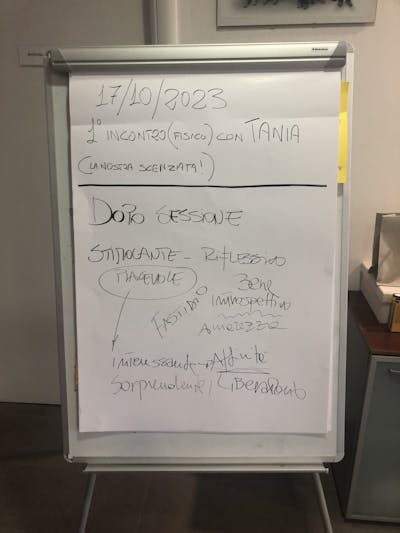 17/10/2023
1° INCONTRO (FISICO) CON TANIA
(LA NOSTRA SCENZATA!)
DOPO SESSIONE
STIMOLANTE - RIFLESSIVO
PIACEVOLE
Bene
FASTIDIO
Introspettivo
Amarezza
Interessante
Sorprendente, Liberatorio